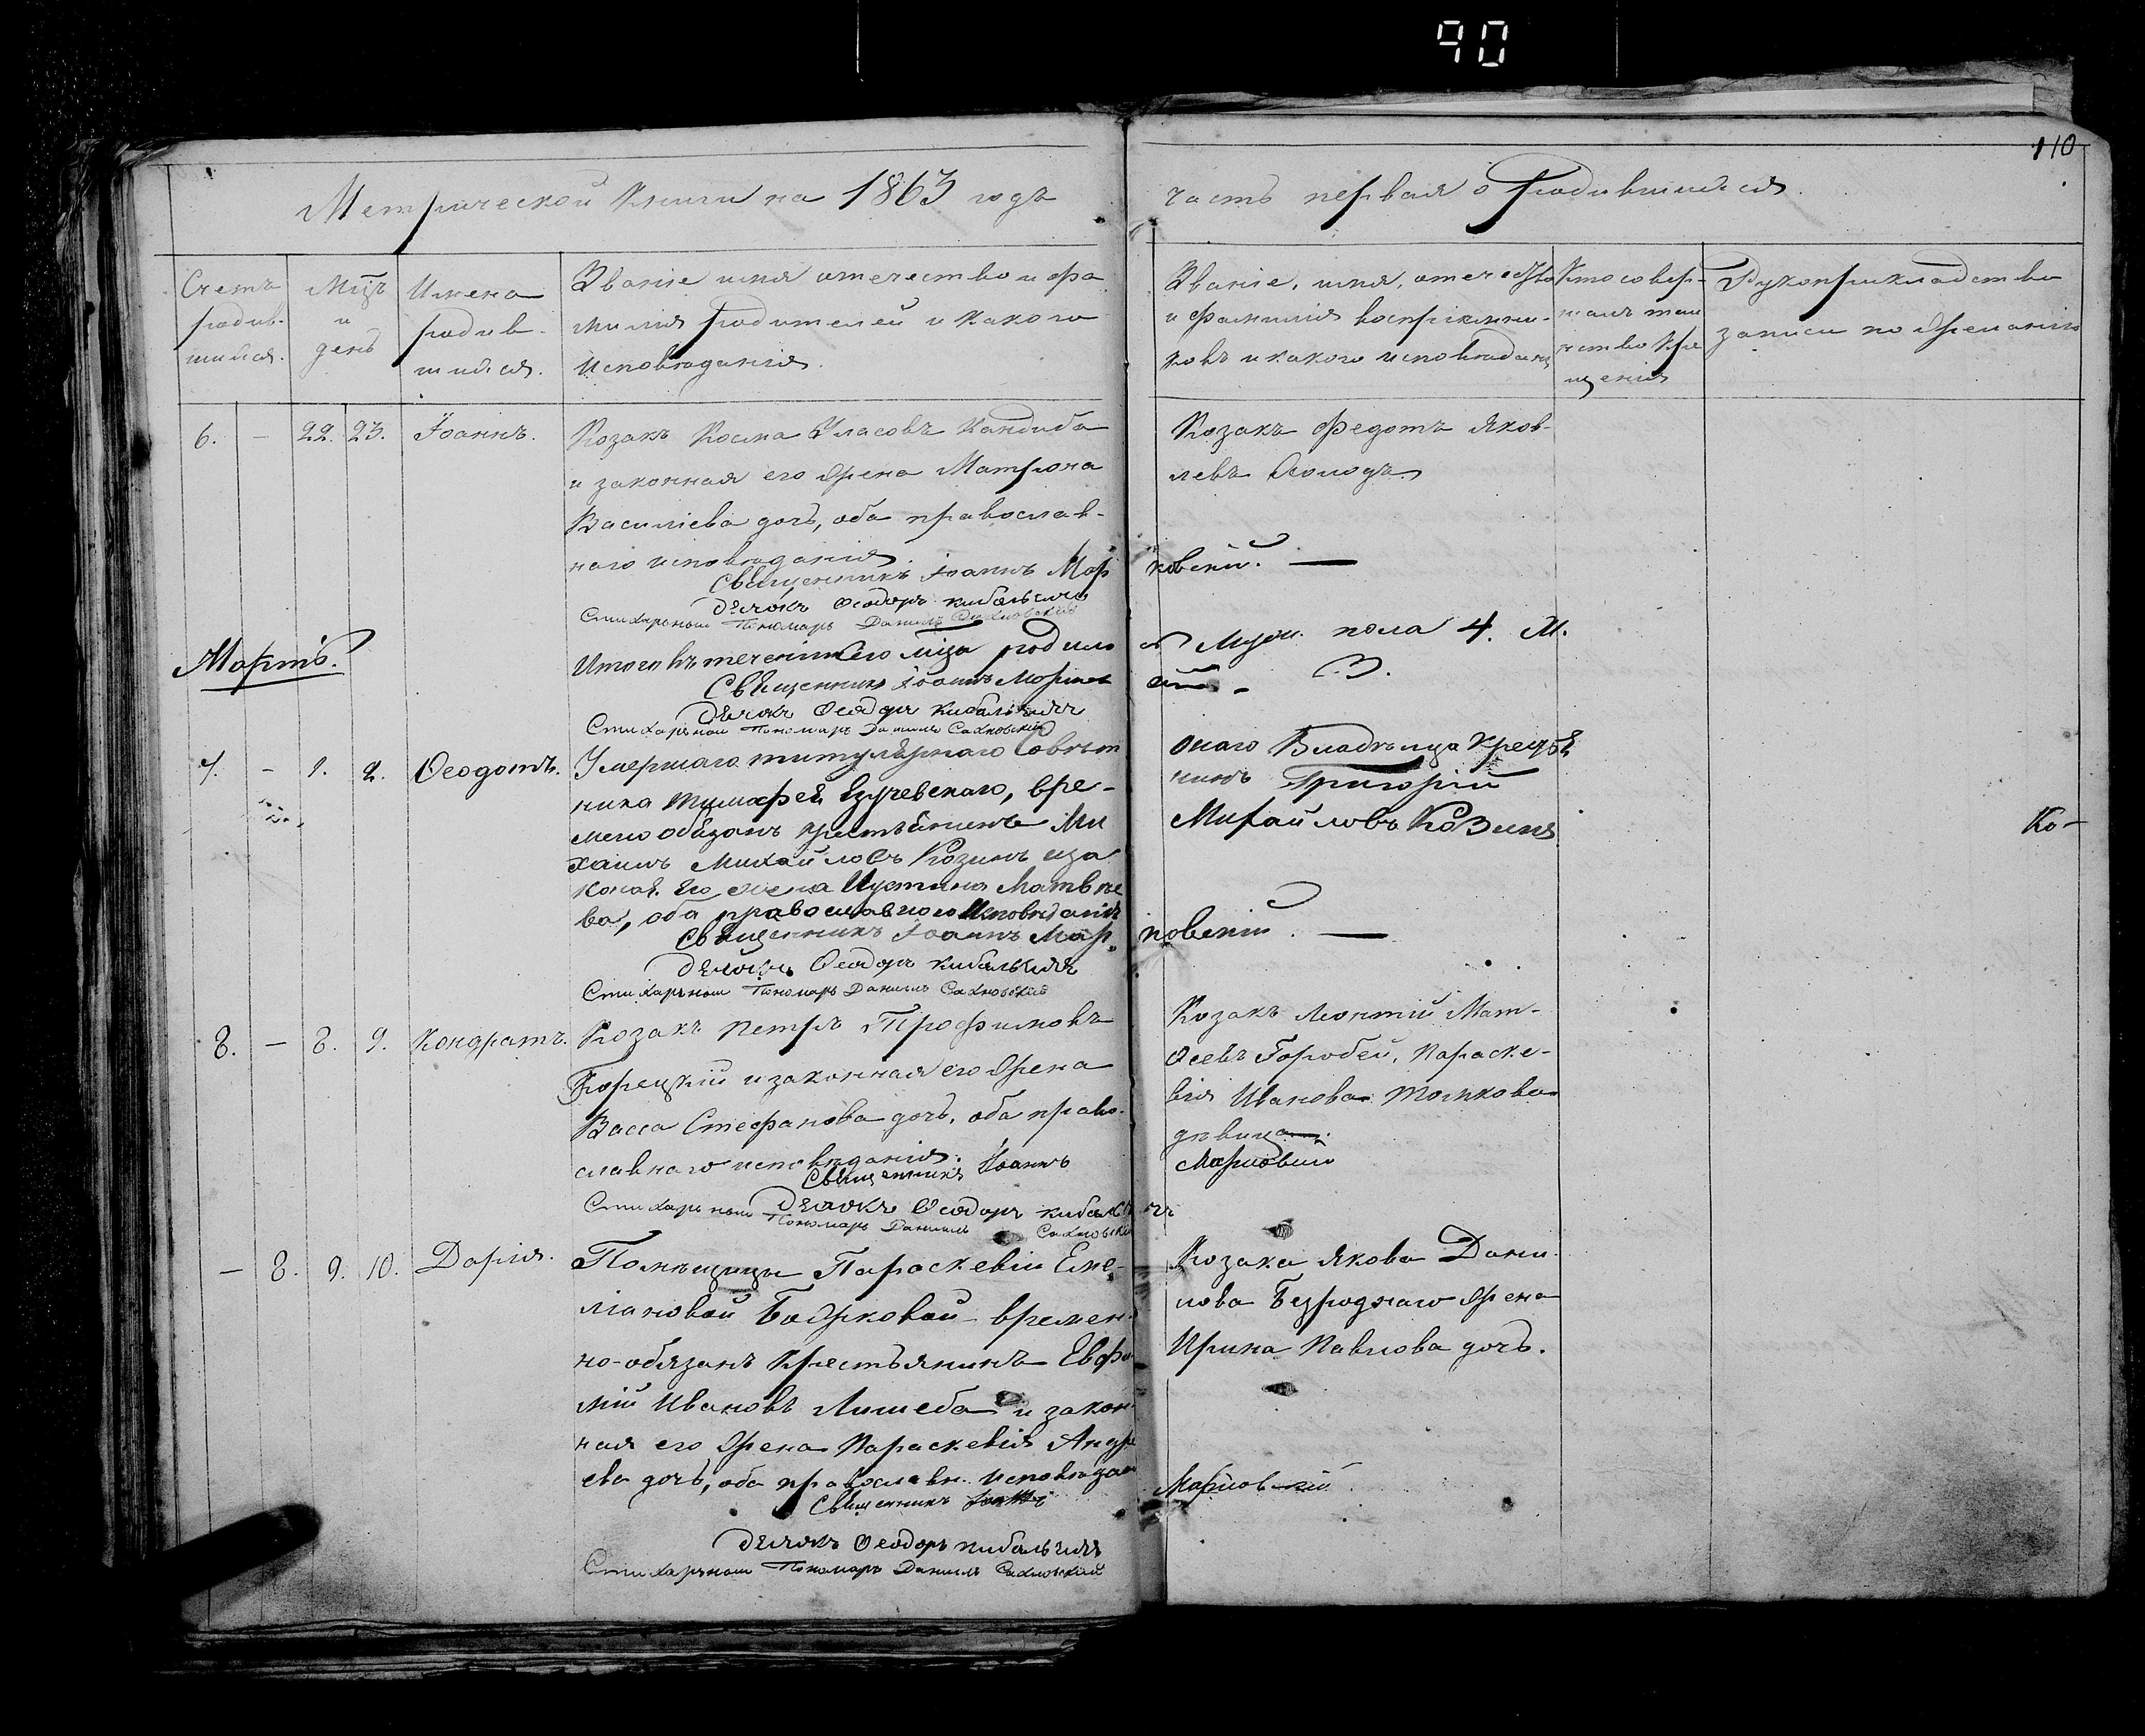 90
110
Метрической Книги на 1863 годъ
часть первая о родившихся.
Счетъ родив-шихся.
Мцъ и день
Имена родив-шихся.
Званіе имя отечество и фа
милія родителей и какого
исповѣданія.
Званіе, имя, отечество
и фамилія воспріемни-
ковъ и какого исповѣданія
Кто совер-
шалъ таи
нство кре
щенія
Рукоприкладство
записи по желанію
6. — 22. 23. Іоаннъ.
Козакъ Косма Власовъ Кандиба
и законная его жена Матрона
Василіева дочь, оба православ-
наго исповѣданія.
Козакъ Федотъ Яков-
левъ Холодъ
Священникъ Іоаннъ Мар
ковскій. —
Дьячокъ Ѳеодоръ Кибальчичъ
Стихарный Пономарь Даніилъ Сахновскій
Мартъ.
Итого въ теченіи сего мца родило
Муж. пола 4. Ж.
3.
Священникъ Іоаннъ Марков
скій
Дьячокъ Ѳеодоръ Кибальчичъ
Стихарный Пономарь Даніилъ Сахновскій
7. — 1. 2. Ѳеодотъ.
Умершаго титулярнаго Совѣт
ника Тимофея Езучевскаго, вре-
менно обязанъ крестьянинъ Ми
хаилъ Михайловъ Козинъ и за
конная его жена Иустина Матвѣе
ва, оба православнаго исповѣданія
онаго Владѣльца крестья
нинъ Григорій
Михайловъ Козинъ
Ко-
Священникъ Іоаннъ Мар
ковскій. —
Дьячокъ Ѳеодоръ Кибальчичъ
Стихарный Пономарь Даніилъ Сахновскій
8. — 8. 9. Кондратъ.
Козакъ Петръ Трофимовъ
Корецкій и законная его жена
Васса Стефанова дочь, оба право-
славнаго исповѣданія.
Козакъ Леонтій Мат-
ѳеевъ Горобей, Параске-
вія Иванова
дѣвица.
Священникъ Іоаннъ
Марковскій
Дьячокъ Ѳеодоръ Кибальчичъ
Стихарный Пономарь Даніилъ Сахновскій
— 8. 9. 10. Дарія.
Помѣщицы Параскевіи Еме-
ліановой Божковой временн
но-обязанъ крестьянинъ Евфи
мій Ивановъ Лишеба и закон
ная его жена Параскевія Андре
ева дочь, оба православн. исповѣдан
Козака Якова Дани
лова Безроднаго жена
Ирина Павлова дочь.
Священникъ Іоаннъ
Марковскій
Дьячокъ Ѳеодоръ Кибальчичъ
Стихарный Пономарь Даніилъ Сахновскій